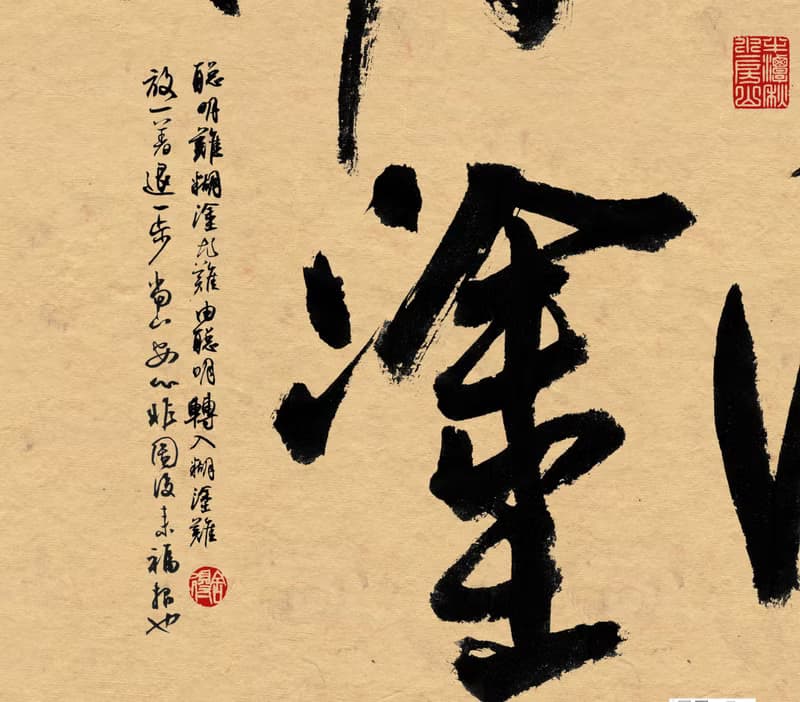 半潭秋
水一房山
塗
聰明難糊塗尤難由聰明轉入糊塗難
放一著退一步當下安心非圖後來福報也